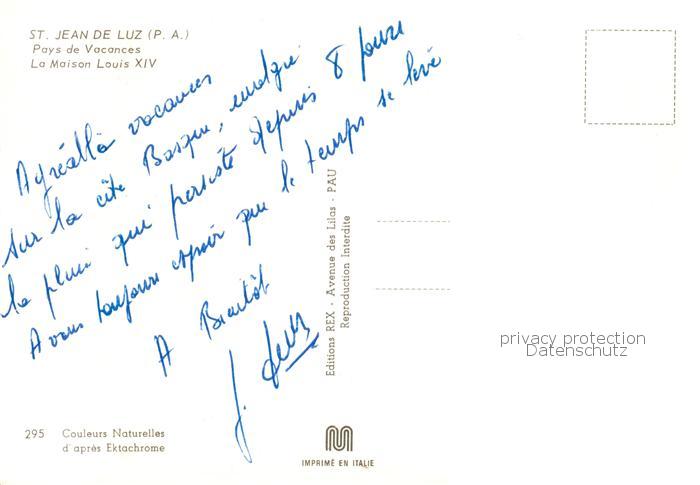 ST. JEAN DE LUZ (P. A.)
Pays de Vacances
La Maison Louis XIV
vacances
sur la côte Basque, malgré
la pluie qui persiste depuis 8 jours
Avons toujours espoir que le temps se lève
A Bientôt
J.
Editions REX - Avenue des Lilas - PAU
Reproduction Interdite
privacy protection
Datenschutz
295 Couleurs Naturelles
d'après Ektachrome
IMPRIMÉ EN ITALIE